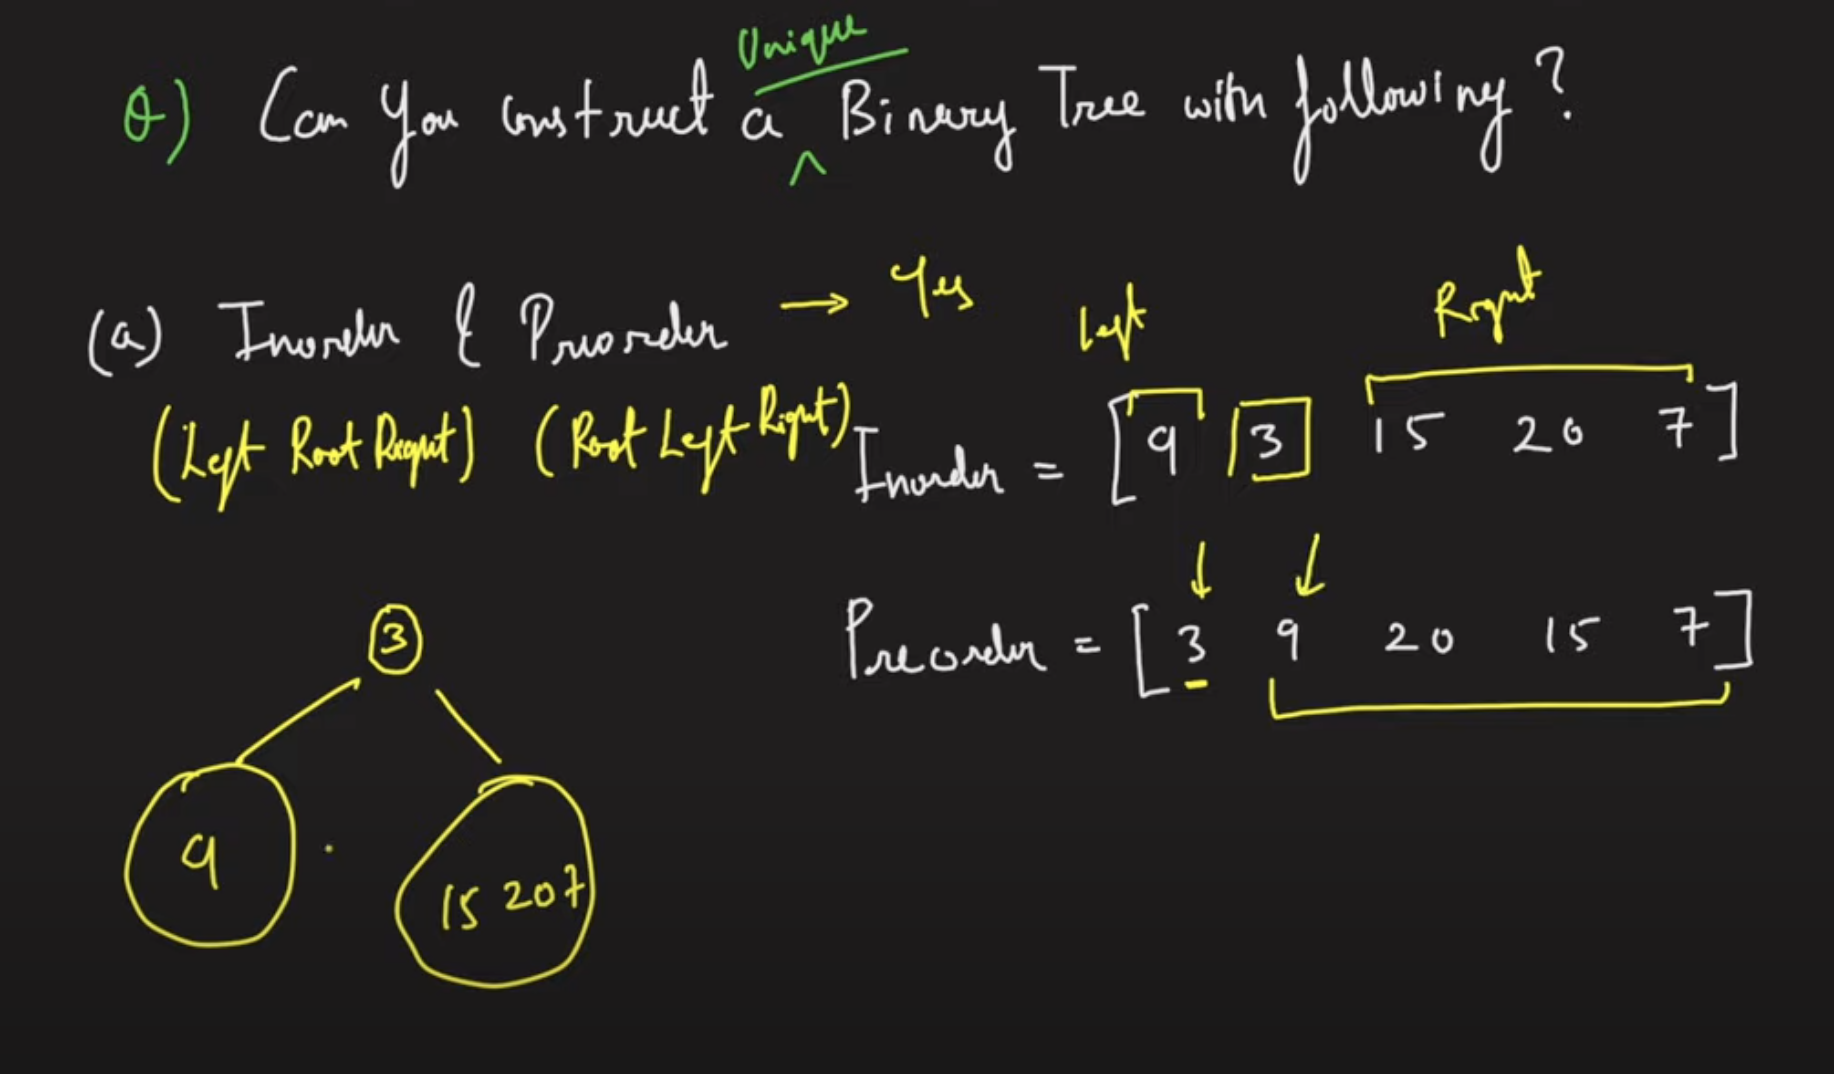 Q) Can you construct a ^ Unique Binary Tree with following?
(a) Inorder & Preorder → Yes
(Left Root Right) (Root Left Right)
Left Right
Inorder = [9 3 15 20 7]
Preorder = [3 9 20 15 7]
3
9 15 20 7